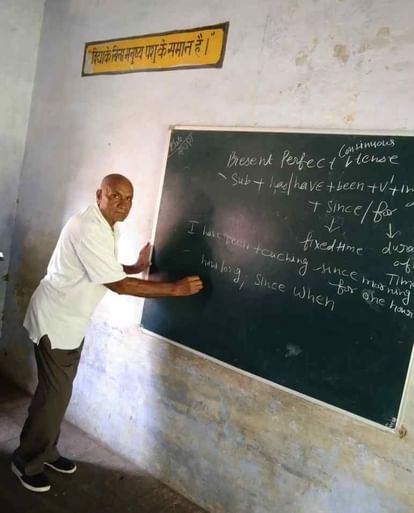 "विद्याके बिना मनुष्य पशु के समान है।"
Present Perfect Continuous tense
Sub + has/have + been + V¹ + in
+ Since/for
↓ ↓
fixed time dura
of
Time
I have been teaching since morning
for one hour
how long, since when